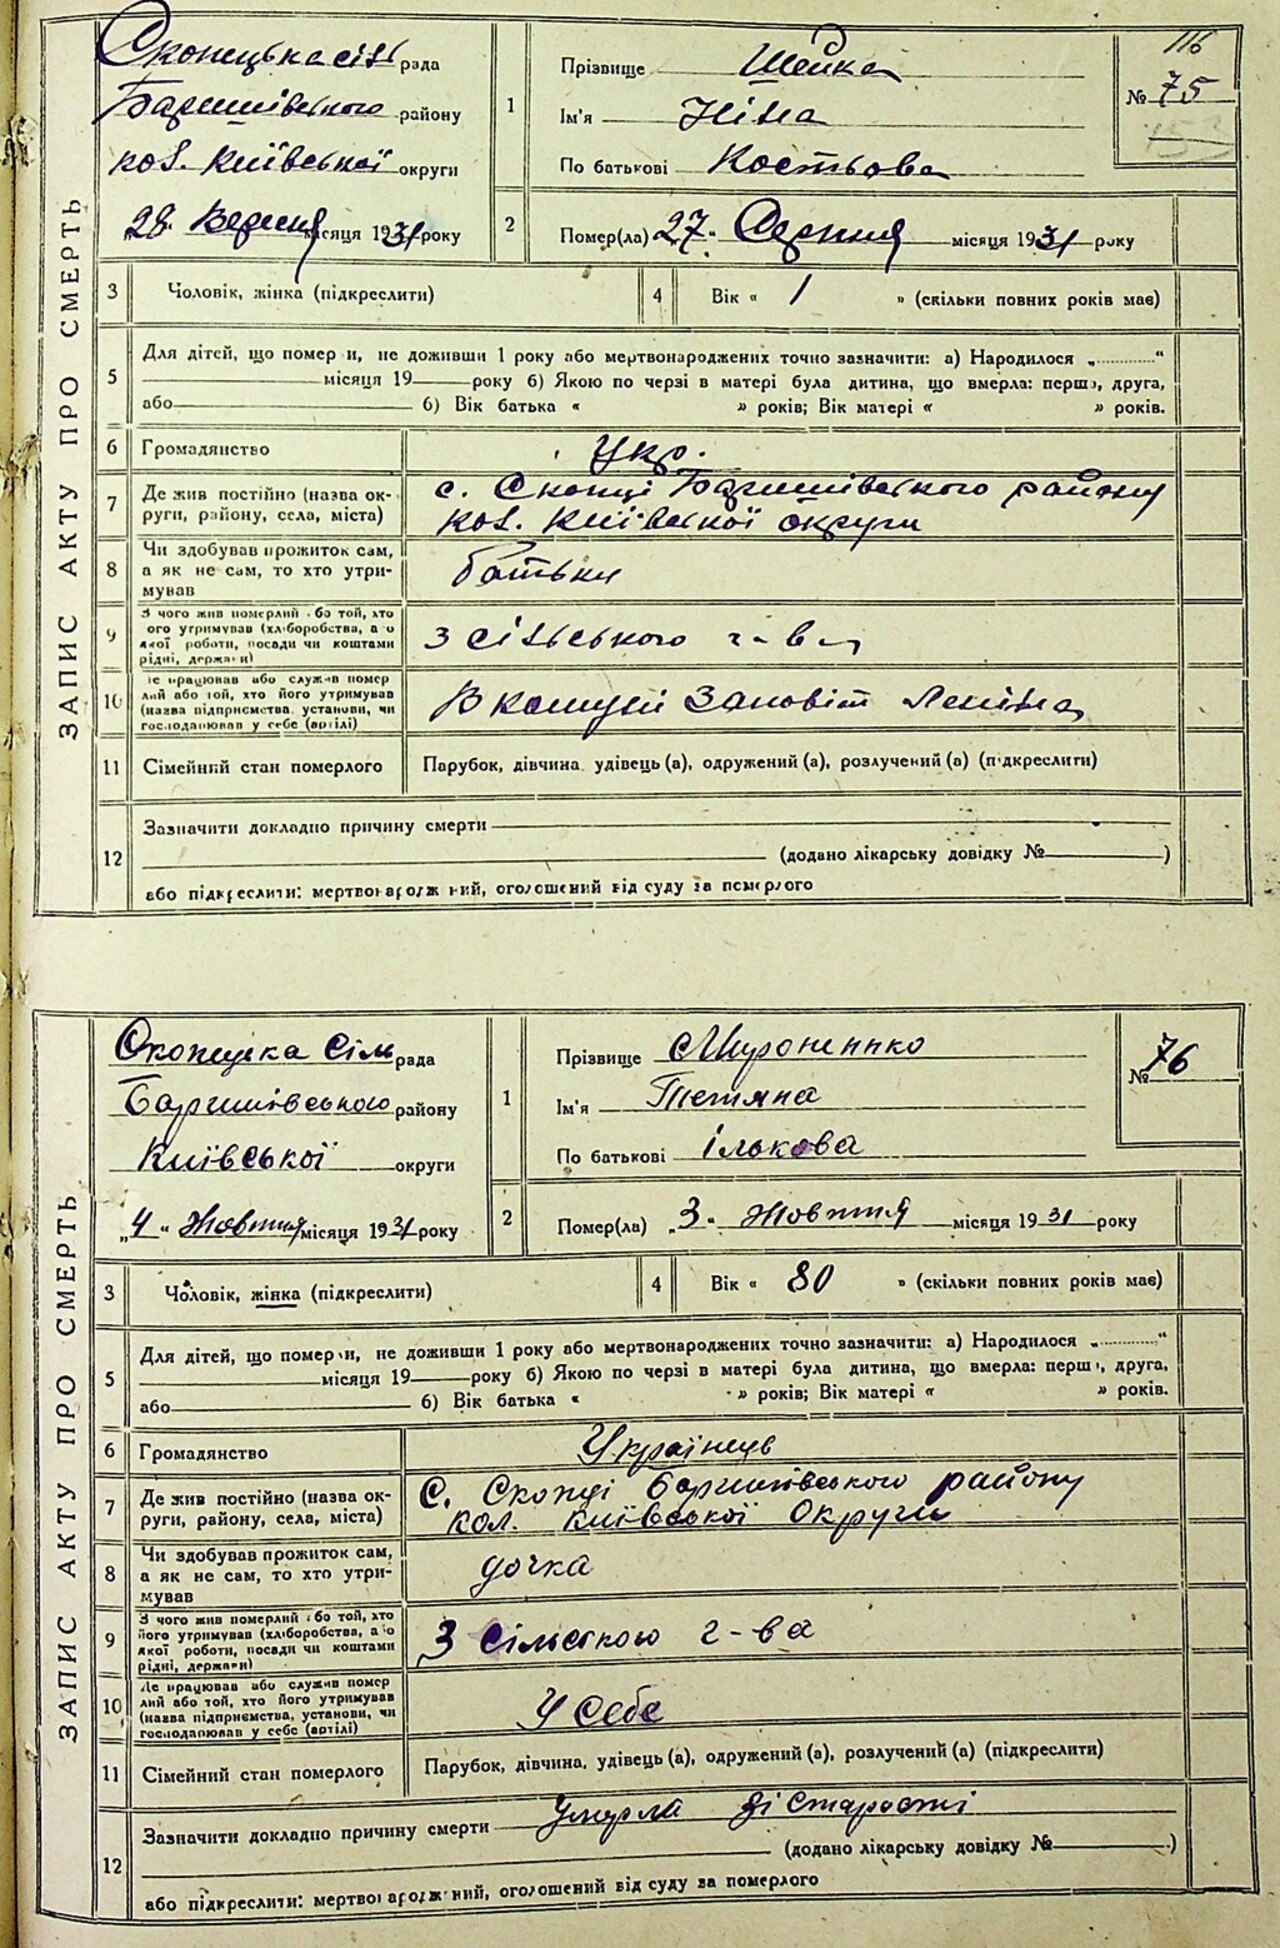 116
№ 75
153
ЗАПИС АКТУ ПРО СМЕРТЬ
Скопецька сіль рада
Баришівського району
кол. Київської округи
„28 Вересня місяця 1931 року
1
Прізвище Шейка
Ім'я Ніна
По батькові Костьова
2
Помер(ла) 27 „ Серпня місяця 1931 року
3
Чоловік, жінка (підкреслити)
4
Вік « 1 » (скільки повних років має)
5
Для дітей, що помер и, не доживши 1 року або мертвонароджених точно зазначити: а) Народилося „.............“
місяця 19 року б) Якою по черзі в матері була дитина, що вмерла: перша, друга,
або б) Вік батька « » років; Вік матері « » років.
6
Громадянство
Укр.
7
Де жив постійно (назва ок-
руги, району, села, міста)
с. Скопці Баришівського району
кол. Київської округи
8
Чи здобував прожиток сам,
а як не сам, то хто утри-
мував
батьки
9
З чого жив померлий або той, хто
ого утримував (хліборобства, а о
якої роботи, посади чи коштами
рідні, держави)
з сільського г-ва
10
е працював або служив помер
лий або той, хто його утримував
(назва підприємства, установи, чи
господарював у себе (артілі)
В комуні Заповіт Леніна
11
Сімейний стан померлого
Парубок, дівчина, удівець (а), одружений (а), розлучений (а) (підкреслити)
12
Зазначити докладно причину смерти
(додано лікарську довідку № )
або підкреслити: мертвонароджений, оголошений від суду за померлого
№ 76
ЗАПИС АКТУ ПРО СМЕРТЬ
Скопецка Сіль рада
Баришівського району
Київської округи
„4“ Жовтня місяця 1931 року
1
Прізвище Мироненнко
Ім'я Тетяна
По батькові Ількова
2
Помер(ла) „3“ Жовтня місяця 1931 року
3
Чоловік, жінка (підкреслити)
4
Вік « 80 » (скільки повних років має)
5
Для дітей, що помер и, не доживши 1 року або мертвонароджених точно зазначити: а) Народилося „.............“
місяця 19 року б) Якою по черзі в матері була дитина, що вмерла: перша, друга,
або б) Вік батька « » років; Вік матері « » років.
6
Громадянство
Українець
7
Де жив постійно (назва ок-
руги, району, села, міста)
С. Скопці Баришівського району
кол. Київської Округи
8
Чи здобував прожиток сам,
а як не сам, то хто утри-
мував
дочка
9
З чого жив померлий або той, хто
його утримував (хліборобства, а о
якої роботи, посади чи коштами
рідні, держави)
З Сільського г-ва
10
Де працював або служив помер
лий або той, хто його утримував
(назва підприємства, установи, чи
господарював у себе (артілі)
У себе
11
Сімейний стан померлого
Парубок, дівчина, удівець (а), одружений (а), розлучений (а) (підкреслити)
12
Зазначити докладно причину смерти Умерла зі Старости
(додано лікарську довідку № )
або підкреслити: мертвонароджений, оголошений від суду за померлого